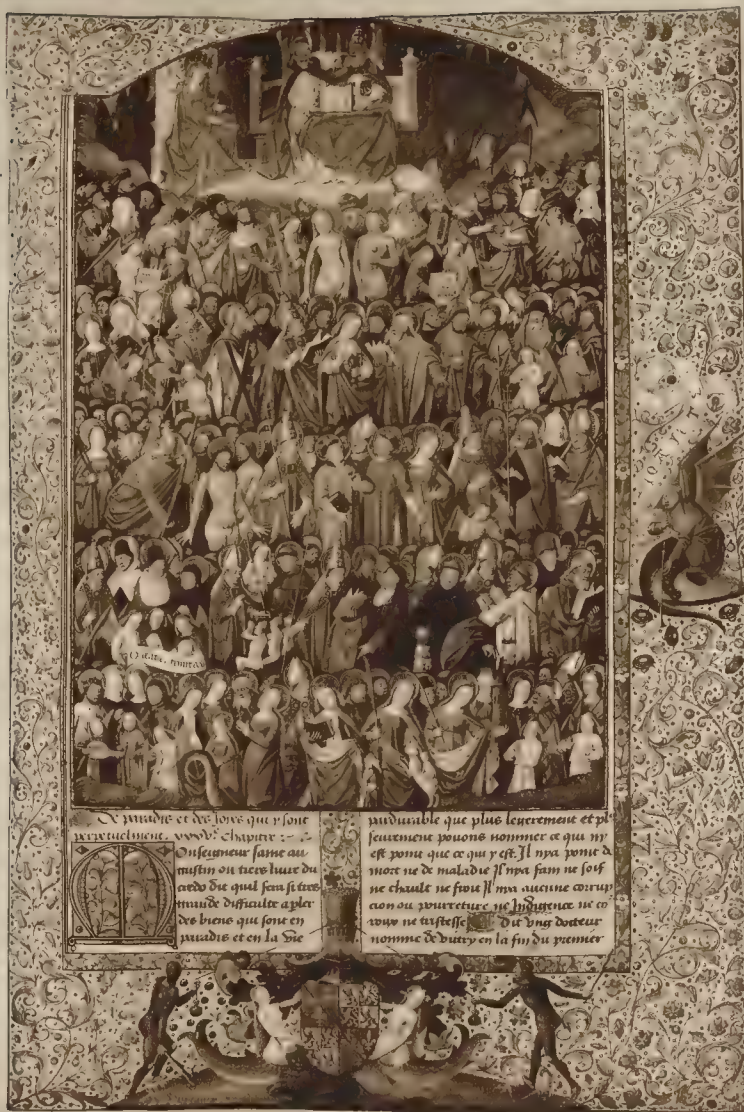 De paradis et des Joyes qui y sont
perpetuelment. Chapitre
Monseigneur saint au
gustin ou tiers liure du
credo dit quil sera si tres
grande difficulte a pler
des biens qui sont en
paradis et en la vie
pardurable que plus legerement et pl
seurement pouons nommer ce qui ny
est point que ce qui y est. Il nya point d
mort ne de maladie Il nya fam ne soif
ne chault ne froit Il nya aucune corrup
cion ou pourreture ne Indigence ne co
roux ne tristesse dit vng docteur
nomme de vitry en la fin du premier